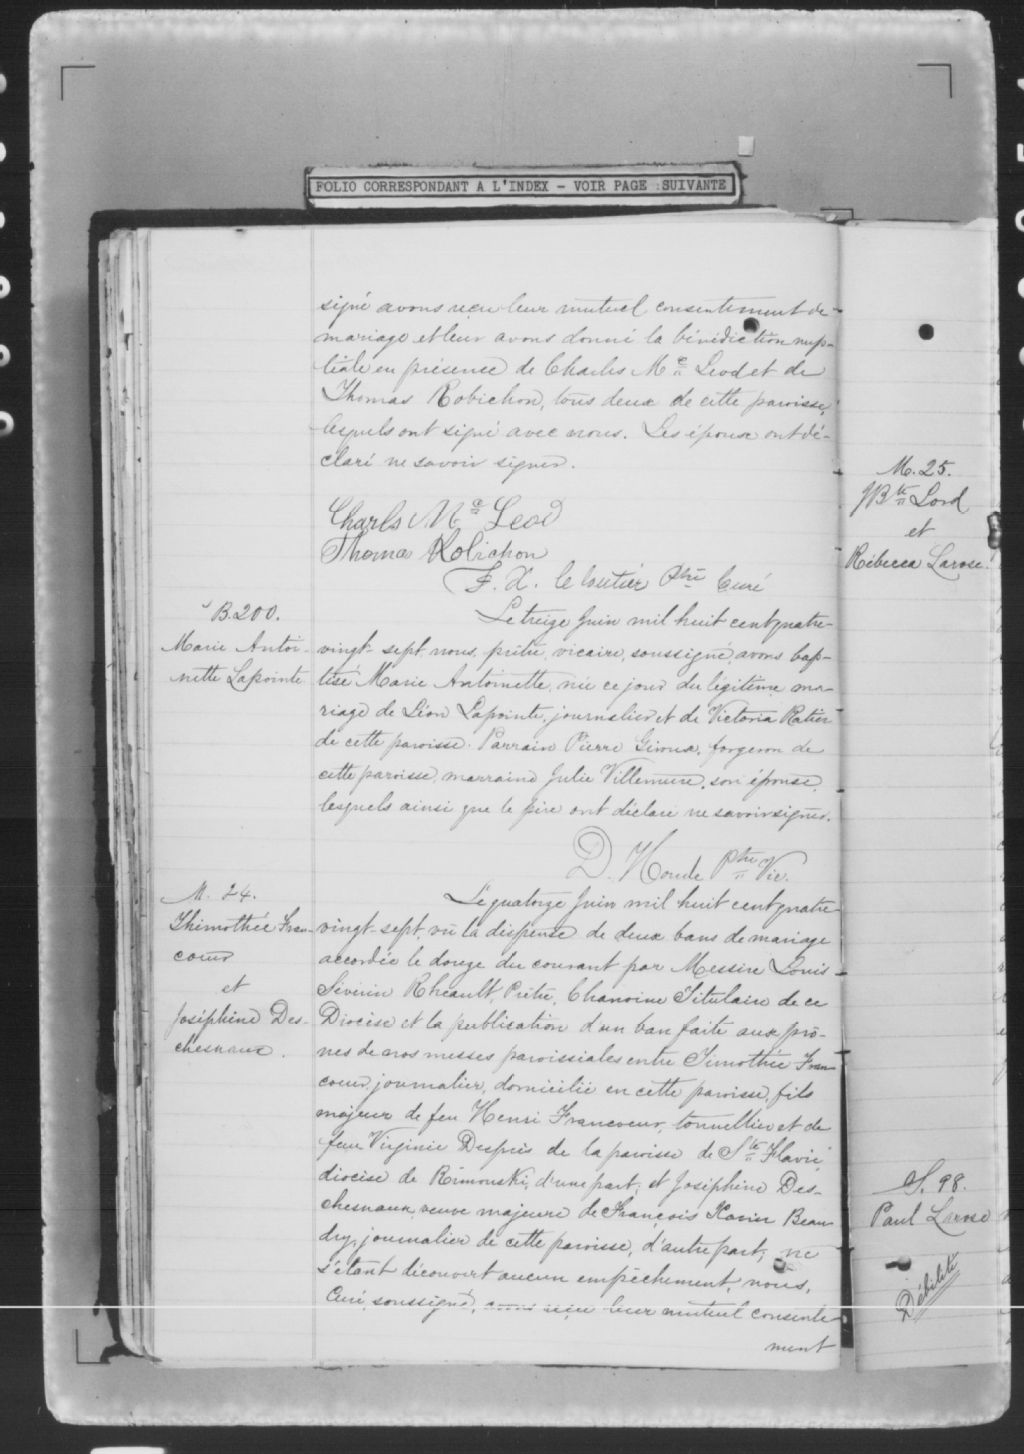 FOLIO CORRESPONDANT A L'INDEX - VOIR PAGE SUIVANTE
signé avons reçu leur mutuel consentement de
mariage et leur avons donné la bénédiction nup-
tiale en présence de Charles Mc Leod et de
Thomas Robichon, tous deux de cette paroisse,
lesquels ont signé avec nous. Les époux ont dé-
claré ne savoir signer.
Charls Mc Leod
Thomas Robichon
F. X. Ptre Curé
B. 200.
Marie Antoi-
nette Lapointe
Le treize Juin mil huit cent quatre-
vingt-sept, nous, prêtre, vicaire, soussigné, avons bap-
tisé Marie Antoinette, née ce jour du légitime ma-
riage de Léon Lapointe, journalier et de Victoria Ratier
de cette paroisse. Parrain Pierre Giroux, forgeron de
cette paroisse, marraine Julie Villemure, son épouse,
lesquels ainsi que le père ont déclaré ne savoir signer.
D. Houde Ptre Vic.
M. 24.
Thimothée Fran-
coeur
et
Joséphine Des-
chesnaux.
Le quatorze Juin mil huit cent quatre
vingt-sept, vu la dispense de deux bans de mariage
accordée le douze du courant par Messire Louis
Séverin Rheault, Prêtre, Chanoine Titulaire de ce
Diocèse et la publication d'un ban faite aux prô-
nes de nos messes paroissiales entre Timothée Fran-
coeur, journalier, domicilié en cette paroisse, fils
majeur de feu Henri Francoeur, tonnellier et de
feue Virginie Després de la paroisse de Ste Flavie,
diocèse de Rimouski, d'une part; et Joséphine Des-
chesnaux, veuve majeure de François Xavier Beau-
dry, journalier de cette paroisse, d'autre part; ne
s'étant découvert aucun empêchement, nous,
Curé, soussigné, avons reçu leur mutuel consente-
ment
M. 25.
JBte Lord
et
Rébecca Larose.
S. 98.
Paul Larose
Débilité